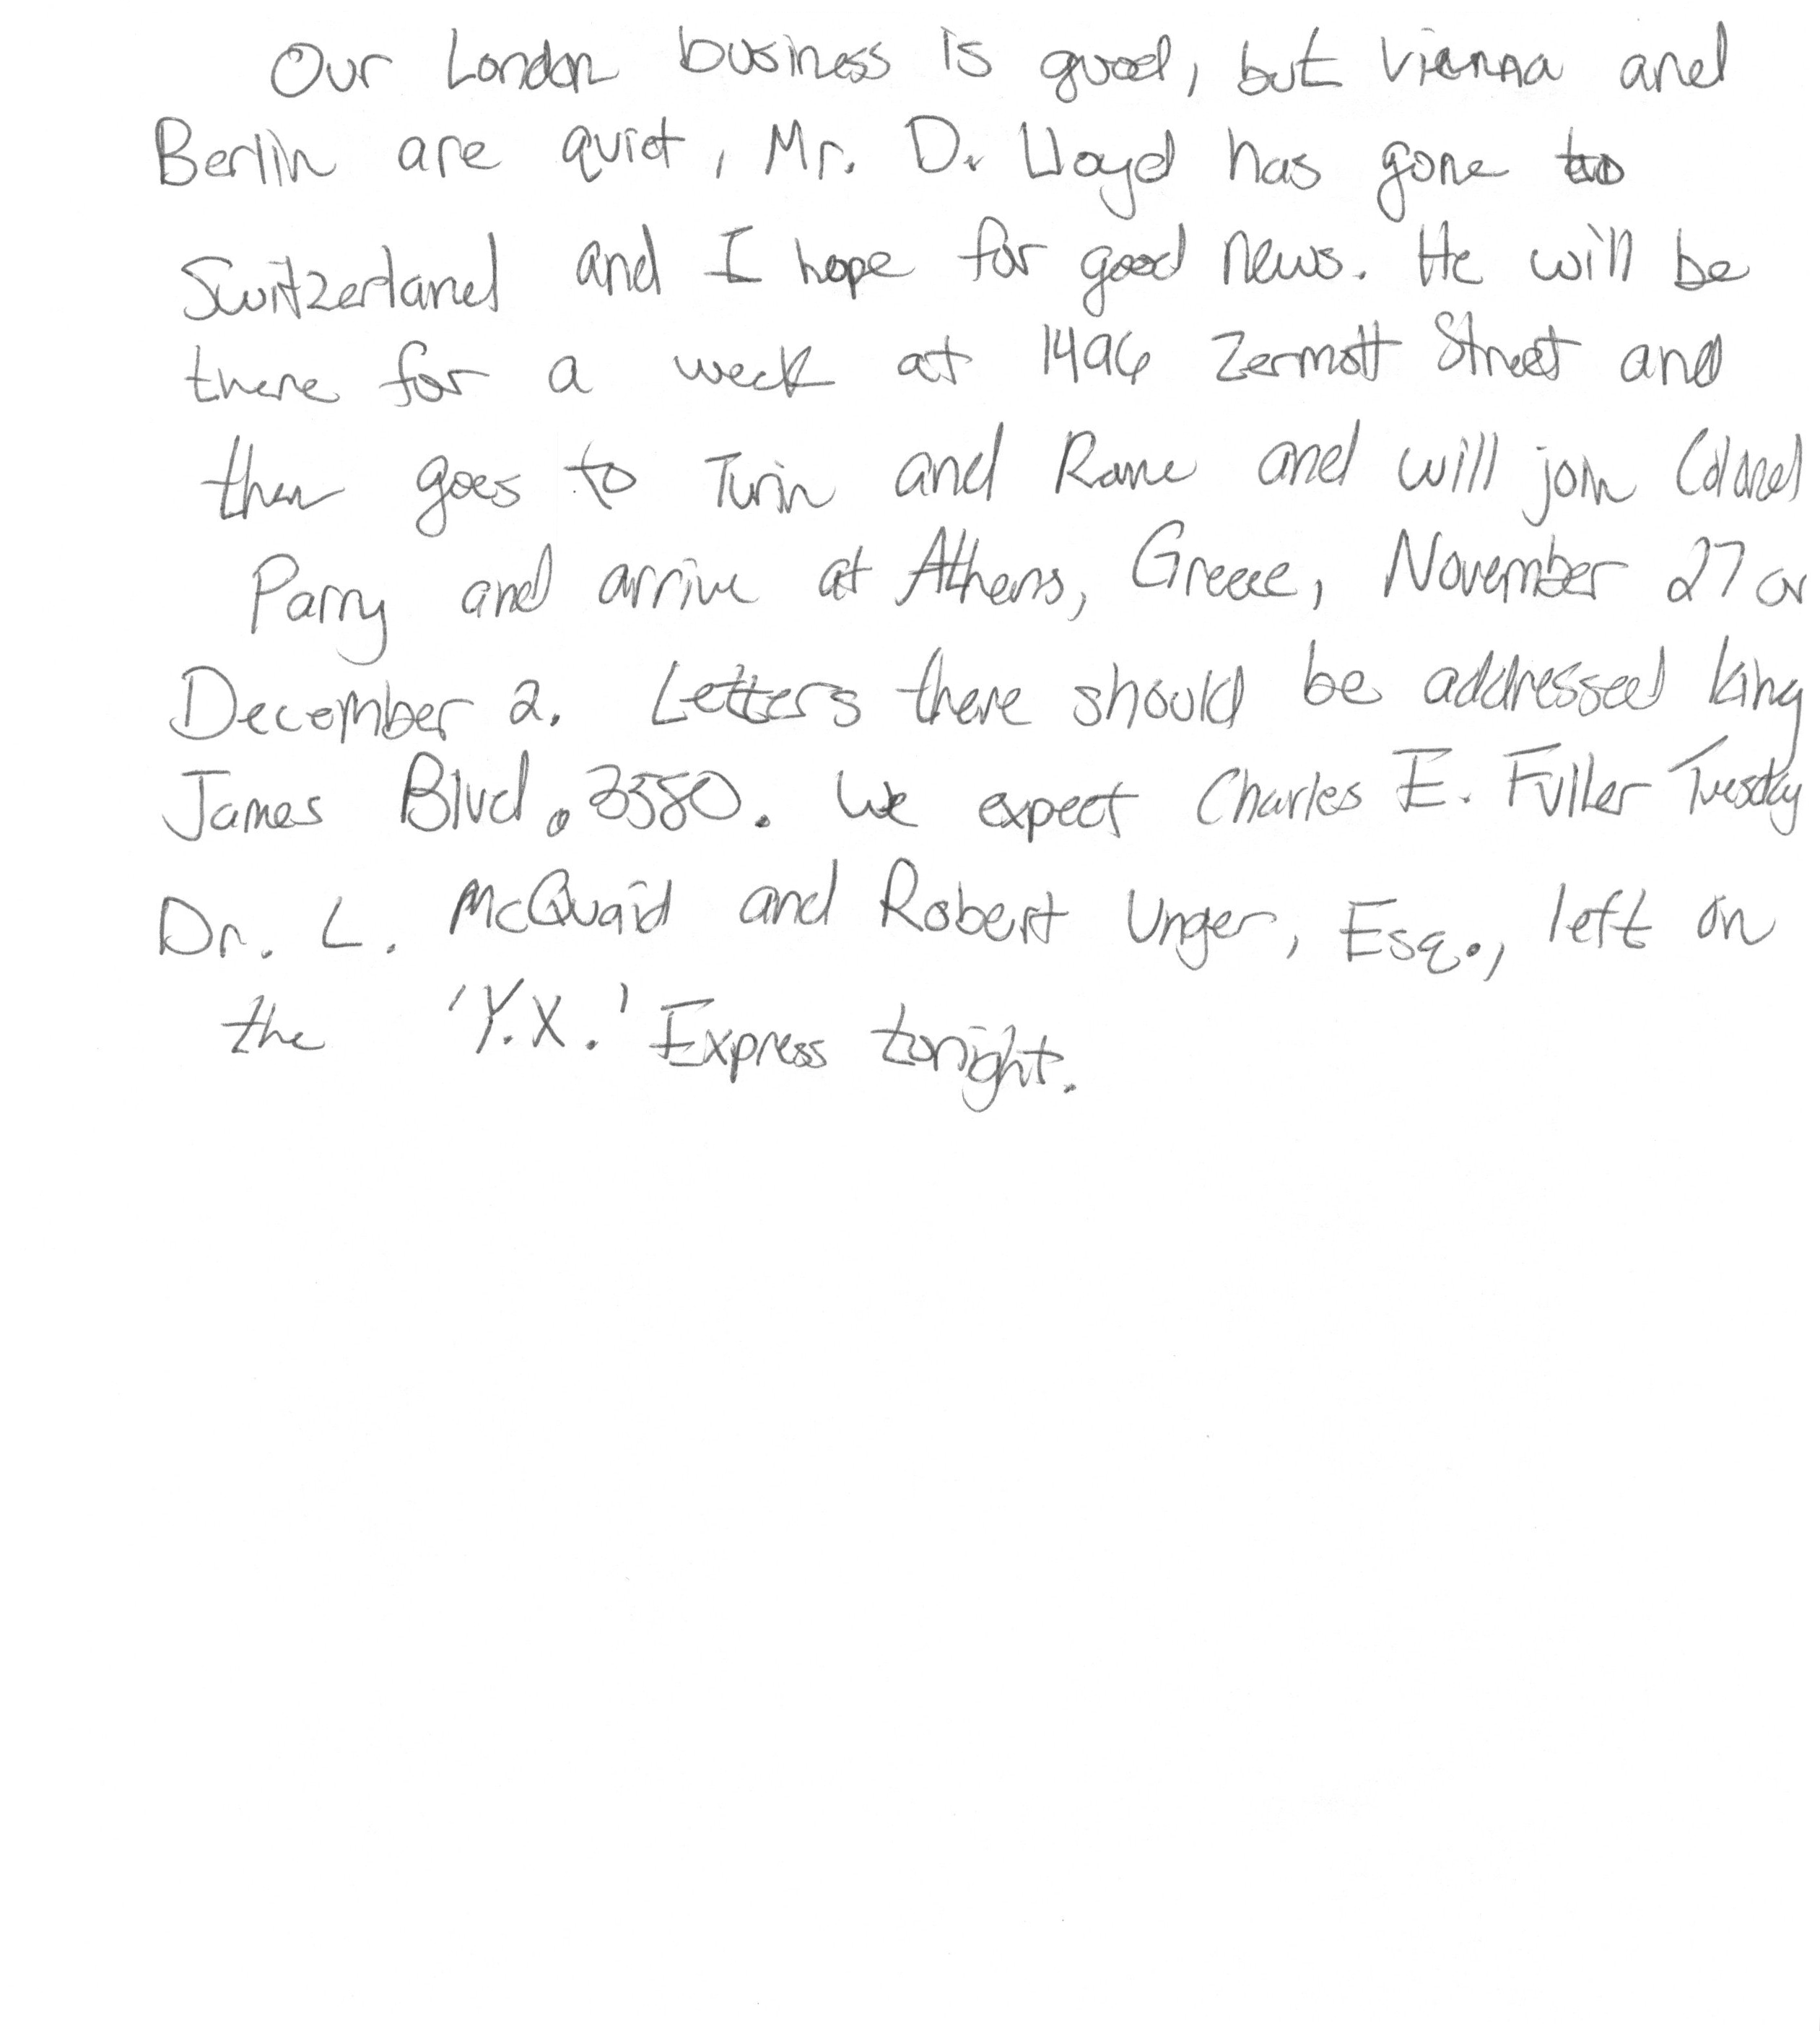 Our London business is good, but Vienna and
Berlin are quiet, Mr. D. Lloyd has gone to
Switzerland and I hope for good news. He will be
there for a week at 1496 Zermott Street and
then goes to Turin and Rome and will join Colonel
Parry and arrive at Athens, Greece, November 27 or
December 2. Letters there should be addressed King
James Blvd. 3580. We expect Charles E. Fuller Tuesday
Dr. L. McQuaid and Robert Unger, Esq., left on
the 'Y.X.' Express tonight.